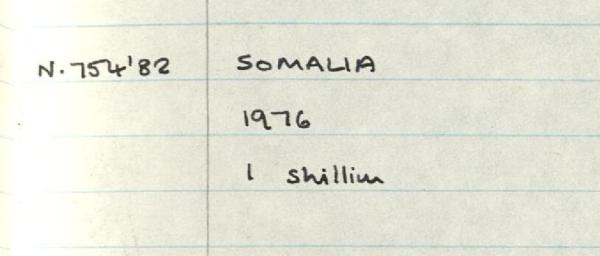 N.754'82 SOMALIA
1976
1 shillin